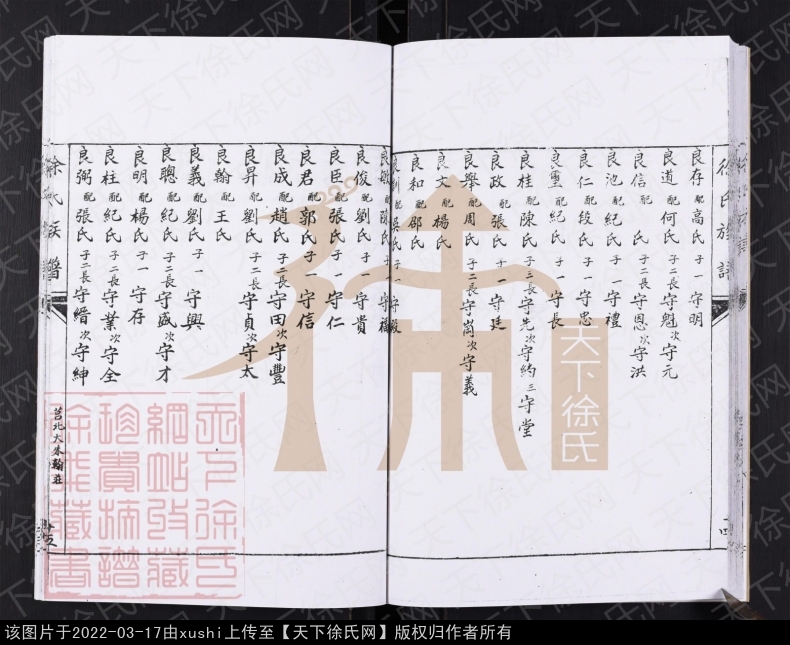 徐氏族譜
良存 配 高氏 子一 守明
良道 配 何氏 子二長 守魁 次 守元
良信 配 氏 子二長 守恩 次 守洪
良池 配 紀氏 子一 守禮
良仁 配 段氏 子一 守忠
良璽 配 紀氏 子一 守長
良桂 配 陳氏 子三長 守先 次 守約 三 守堂
良政 配 張氏 子一 守廷
良舉 配 周氏 子二長 守 次 守義
良文 配 楊氏
良和 配 邵氏
良 配 吳氏 子一 守
良 配 氏 子一 守福
良俊 配 劉氏 子一 守貴
良臣 配 張氏 子一 守仁
良君 配 郭氏 子一 守信
良成 配 趙氏 子二長 守田 次 守豐
良昇 配 劉氏 子二長 守貞 次 守太
良翰 配 王氏
良義 配 劉氏 子一 守興
良聰 配 紀氏 子二長 守盛 次 守才
良明 配 楊氏 子一 守存
良柱 配 紀氏 子二長 守業 次 守全
良弼 配 張氏 子二長 守縉 次 守紳
徐氏族譜
莒北大朱翰莊
天下徐氏
天下徐氏网
该图片于2022-03-17由xushi上传至【天下徐氏网】版权归作者所有